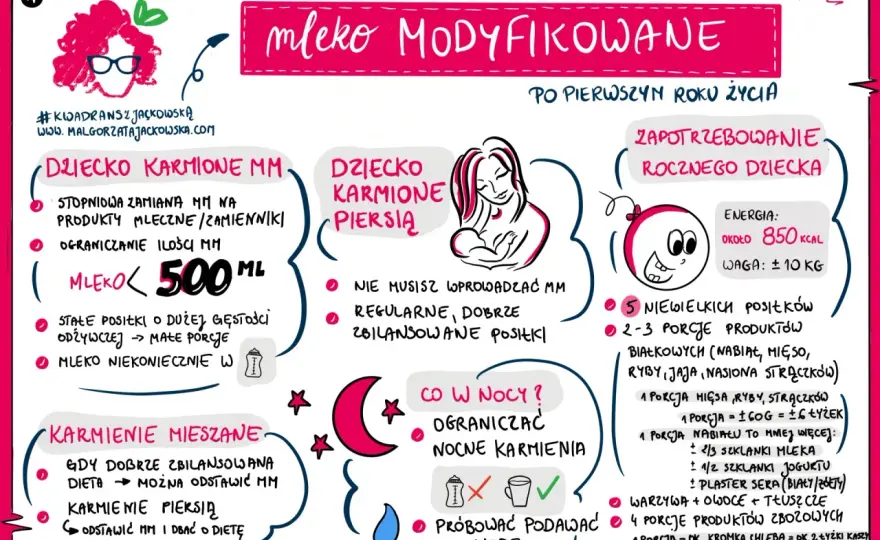 mleko MODYFIKOWANE
PO PIERWSZYM ROKU ŻYCIA
#KWADRANSZJACKOWSKĄ
WWW.MALGORZATAJACKOWSKA.COM
DZIECKO KARMIONE MM
STOPNIOWA ZAMIANA MM NA
PRODUKTY MLECZNE/ZAMIENNIKI
OGRANICZANIE ILOŚCI MM
MLEKO < 500 ML
STAŁE POSIŁKI O DUŻEJ GĘSTOŚCI
ODŻYWCZEJ → MAŁE PORCJE
MLEKO NIEKONIECZNIE W
KARMIENIE MIESZANE
GDY DOBRZE ZBILANSOWANA
DIETA → MOŻNA ODSTAWIĆ MM
KARMIENIE PIERSIĄ
↳ ODSTAWIĆ MM I DBAĆ O DIETĘ
DZIECKO
KARMIONE
PIERSIĄ
NIE MUSISZ WPROWADZAĆ MM
REGULARNE, DOBRZE
ZBILANSOWANE POSIŁKI
CO W NOCY?
OGRANICZAĆ
NOCNE KARMIENIA
PRÓBOWAĆ PODAWAĆ
ZAPOTRZEBOWANIE
ROCZNEGO DZIECKA
ENERGIA:
OKOŁO 850 KCAL
WAGA: ± 10 KG
5 NIEWIELKICH POSIŁKÓW
2-3 PORCJE PRODUKTÓW
BIAŁKOWYCH (NABIAŁ, MIĘSO,
RYBY, JAJA, NASIONA STRĄCZKÓW)
1 PORCJA MIĘSA, RYBY, STRĄCZKÓW
1 PORCJA = ± 60G = ± 6 ŁYŻEK
1 PORCJA NABIAŁU TO MNIEJ WIĘCEJ:
± 2/3 SZKLANKI MLEKA
± 1/2 SZKLANKI JOGURTU
± PLASTER SERA (BIAŁY/ŻÓŁTY)
WARZYWA + OWOCE + TŁUSZCZE
4 PORCJE PRODUKTÓW ZBOŻOWYCH
1 PORCJA = OK. KROMKA CHLEBA = OK 2 ŁYŻKI KASZY